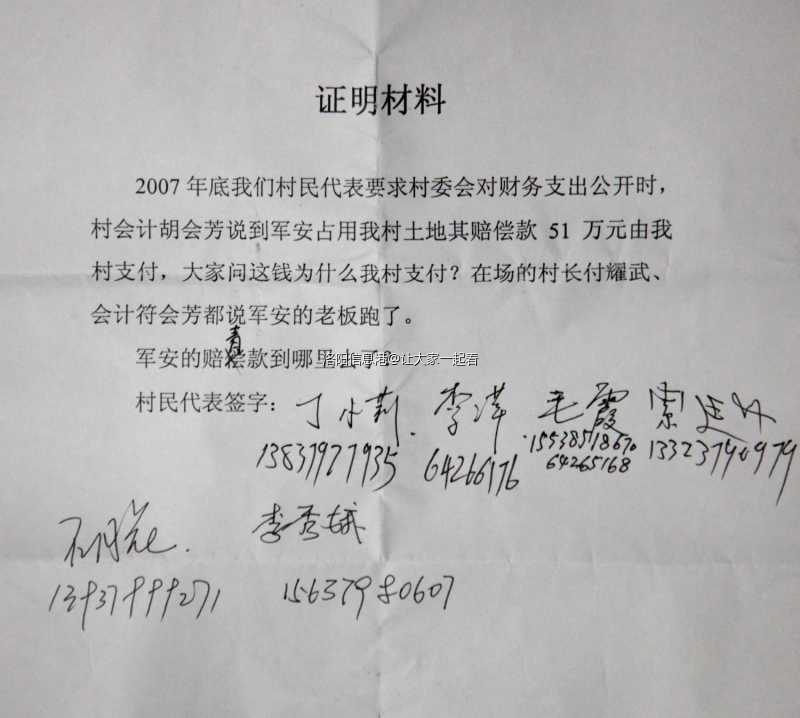 证明材料
2007 年底我们村民代表要求村委会对财务支出公开时，
村会计胡会芳说到军安占用我村土地其赔偿款 51 万元由我
村支付，大家问这钱为什么我村支付？在场的村长付耀武、
会计符会芳都说军安的老板跑了。
军安的赔偿款到哪里去了？
洛阳信息港@让大家一起看
村民代表签字：丁小莉 李萍 毛霞 索
13837977935 64266176 15538518670
64265168
李秀娥
13937999271 15637980607